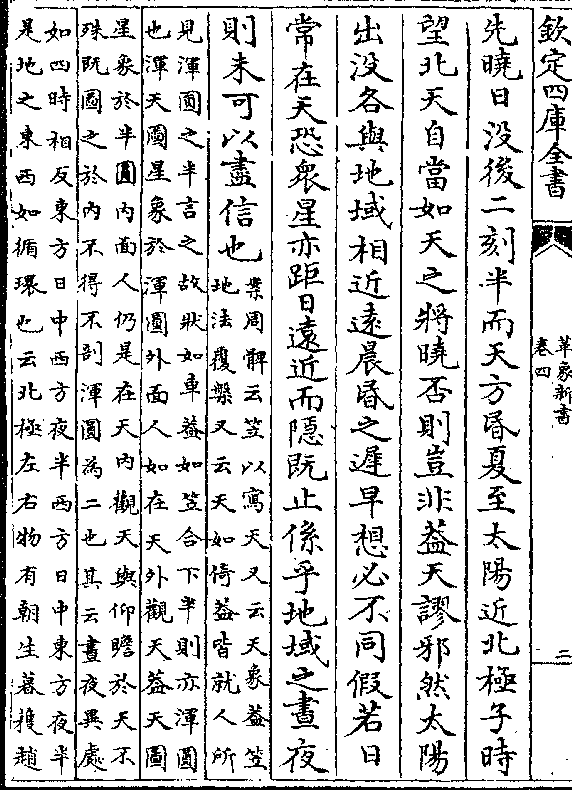 欽定四庫全書
革象新書
卷四
二
先曉日没後二刻半而天方昏夏至太陽近北極子時
望北天自當如天之將曉否則豈非葢天謬邪然太陽
出没各與地域相近遠晨昏之遲早想必不同假若日
常在天恐衆星亦距日遠近而隱既止係乎地域之晝夜
則未可以盡信也
案周髀云笠以寫天又云天象葢笠
地法覆槃又云天如倚葢皆就人所
見渾圓之半言之故狀如車葢如笠合下半則亦渾圓
也渾天圖星象於渾圓外面人如在天外觀天葢天圖
星象於半圓内面人仍是在天内觀天與仰瞻於天不
殊既圖之於内不得不剖渾圓為二也其云晝夜異處
如四時相反東方日中西方夜半西方日中東方夜半
是地之東西如循環也云北極左右物有朝生暮穫趙